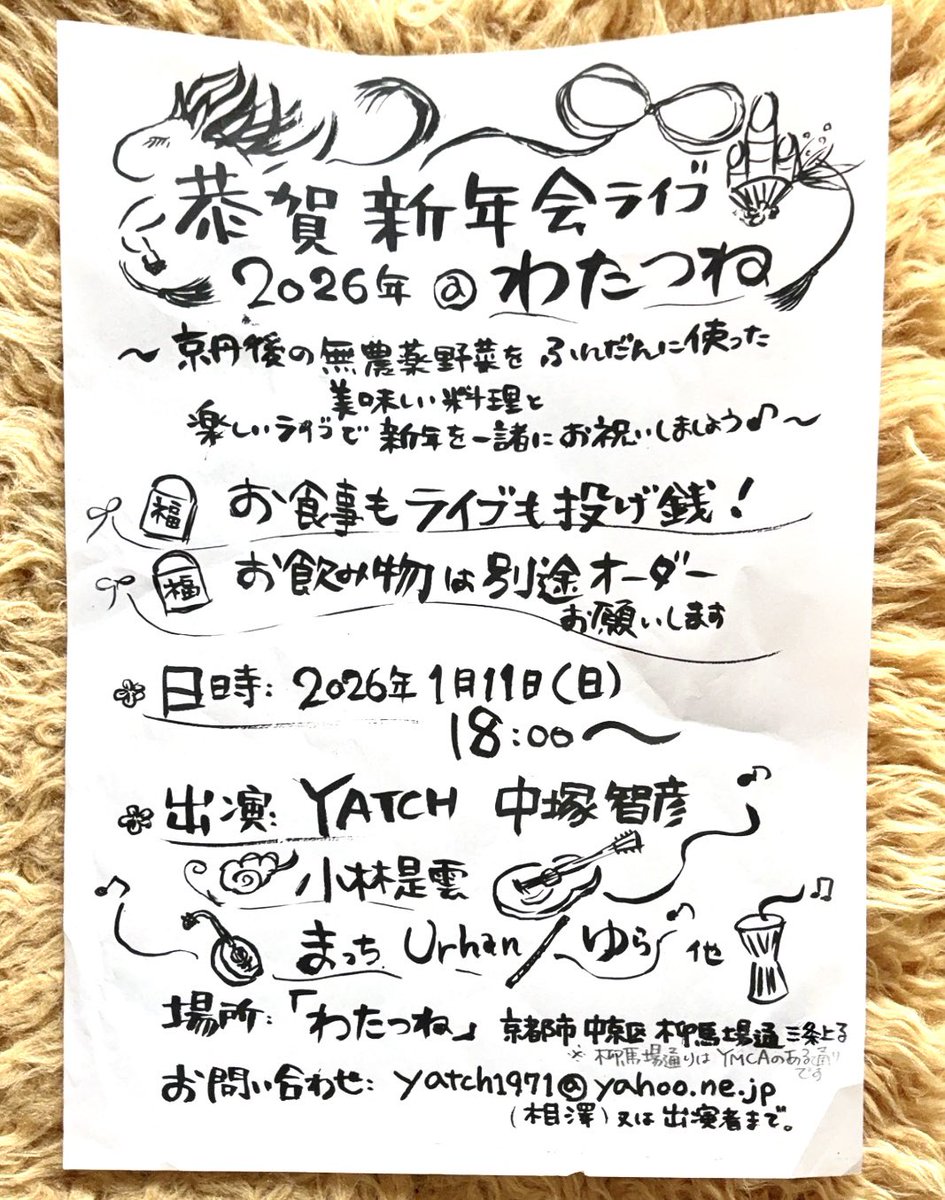 恭賀新年会ライブ
2026年@わたつね
〜京丹後の無農薬野菜をふんだんに使った
美味しい料理と
楽しいライブで新年を一緒にお祝いしましょう♪〜
福 お食事もライブも投げ銭!
福 お飲み物は別途オーダー
お願いします
日時: 2026年1月11日(日)
18:00〜
出演: YATCH 中塚智彦
小林是雲
まっち Urhan ゆら 他
場所:「わたつね」京都市中京区柳馬場通三条上る
※柳馬場通りはYMCAのある通り
です
お問い合わせ: yatch1971@yahoo.ne.jp
(相澤)又は出演者まで。